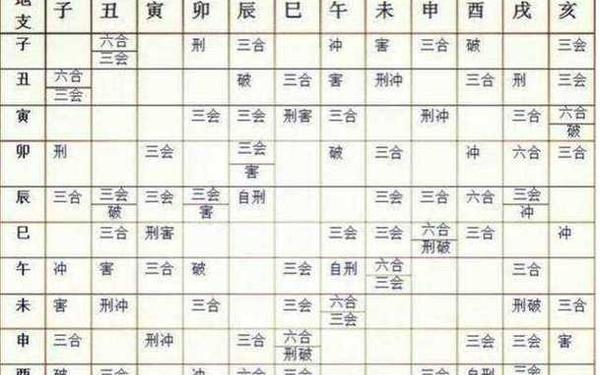 地支 子 丑 寅 卯 辰 巳 午 未 申 酉 戌 亥
子 六合 三会 刑 三合 冲 害 三合 破 三会
丑 六合 三会 破 三合 害 刑冲 三合 刑 三会
寅 三会 三会 刑害 三合 刑冲 三合 六合 破
卯 刑 三会 三会 害 破 三合 冲 六合 三合
辰 三合 三会 破 三会 三会 害 自刑 三会 三合 六合 三会 冲
巳 三合 刑害 三会 三会 六合 刑破 三合 冲
午 冲 害 三合 破 三会 自刑 六合 三会 三合
未 害 刑冲 三合 三会 六合 三会 刑破 三合
申 三合 刑冲 三合 六合 刑破 三会 三会 害
酉 破 三合 冲 六合 三合 三会 自刑 三会